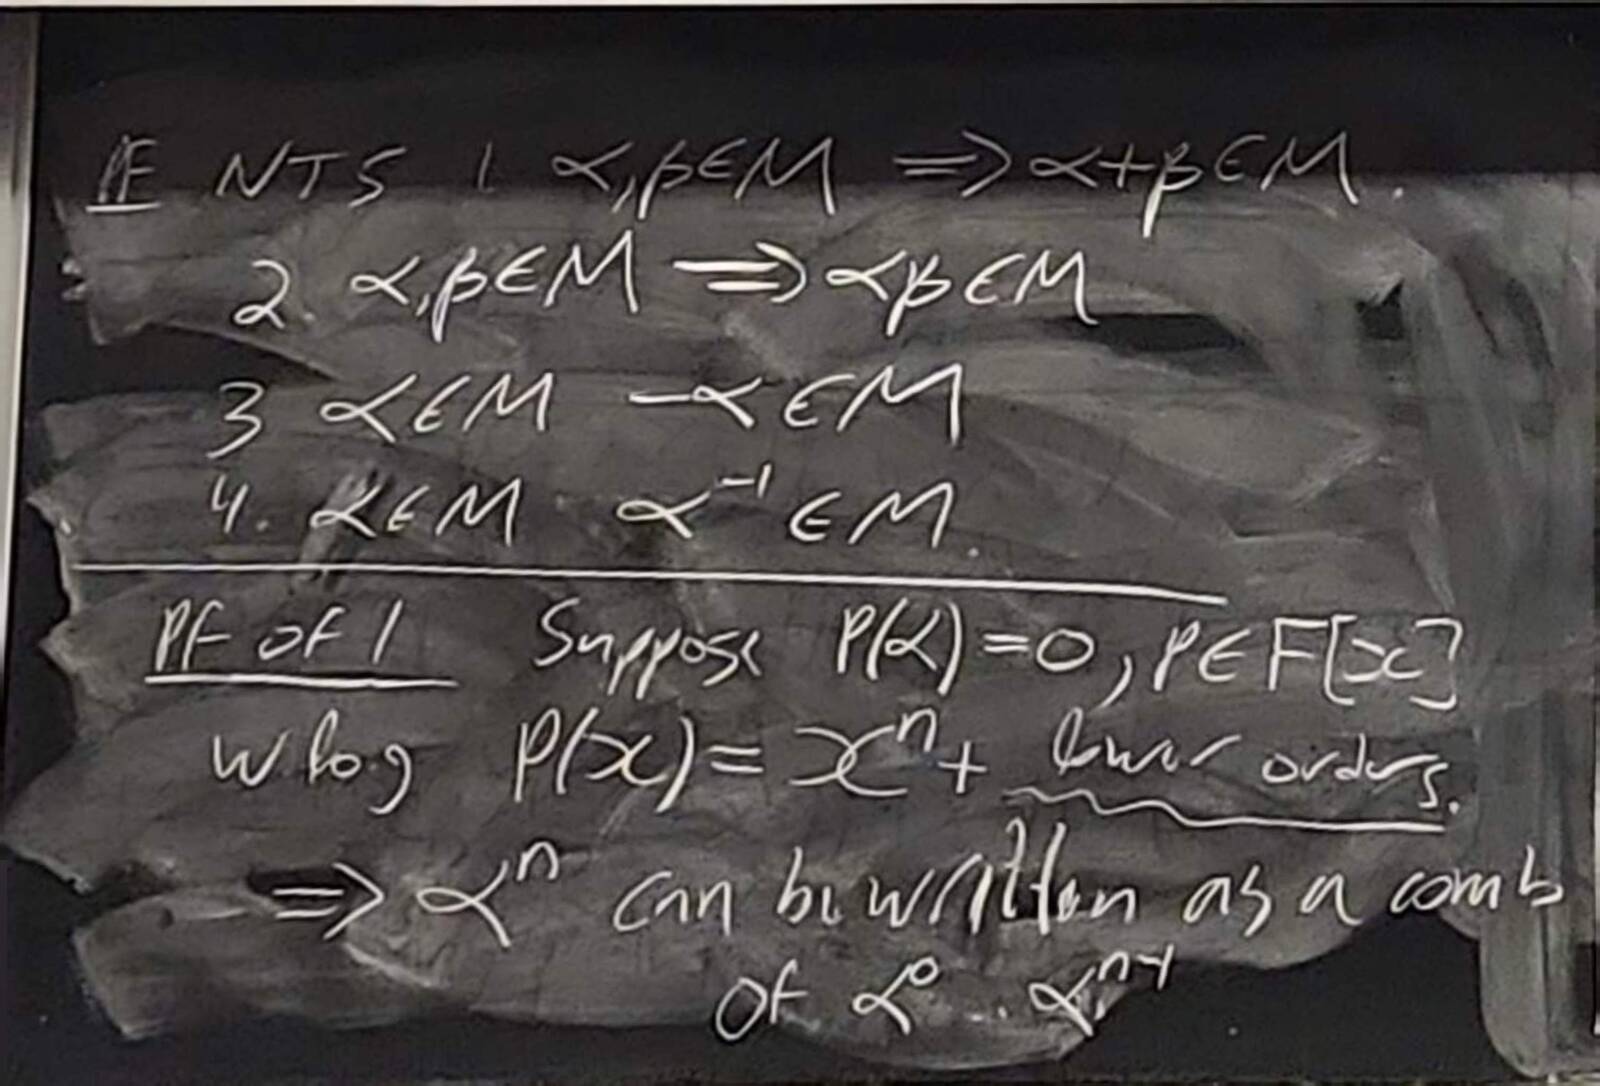 PF NTS 1 α,β∈M ⇒ α+β∈M.
2 α,β∈M ⇒ αβ∈M
3 α∈M -α∈M
4. α∈M α⁻¹∈M.
PF of 1 Suppose P(α)=0, P∈F[x]
wlog P(x)=xⁿ+ lower orders.
⇒ αⁿ can be written as a comb
of α⁰..αⁿ⁻¹